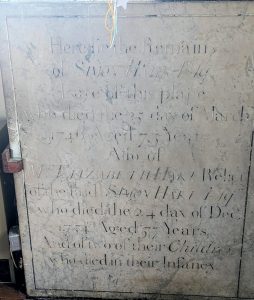 Here lie the Remains
of SIMON HART Esq
Late of this place
who died the 25 day of March
Aged 75 Years
Also of
ELIZABETH HART Relict
of the said SIMON HART Esq
who died the 24 day of Dec
1754 Aged 57 Years,
And of two of their Children
who died in their Infancy